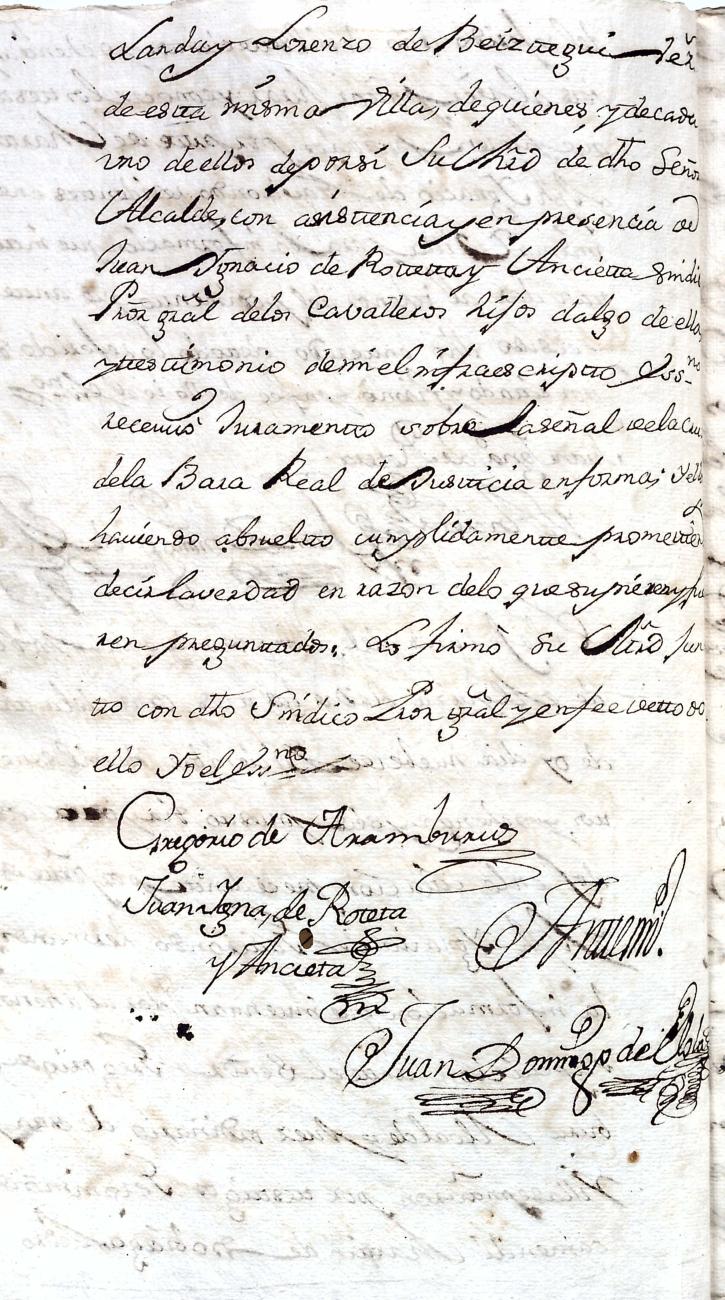 Landa y Lorenzo de Beiztegui
de esta misma Villa, de quienes, y de cada
uno de ellos de por sí Su Mrd de dho Señor
Alcalde, con asistencia y en presencia de
Juan Ygnacio de Rotetta y Ancietta Sindi
Pror gral delos Cavalleros hijos dalgo de ella
y testimonio de mi el infraescripto Essno
recevió Juramento sobre la señal de la Cru
de la Bara Real de Justicia en forma; y
haviendo absuelto cumplidamente prometie
decir la verdad en razon delo que supieren y fu
ren preguntados. Lo firmó su Mrd Jun
to con dho Sindico Pror gral y en fee de todo
ello Yo el Essno
Gregorio de Aramburu
Juan Igna, de Roteta
y Ancieta
Antemi.
Juan Domingo de